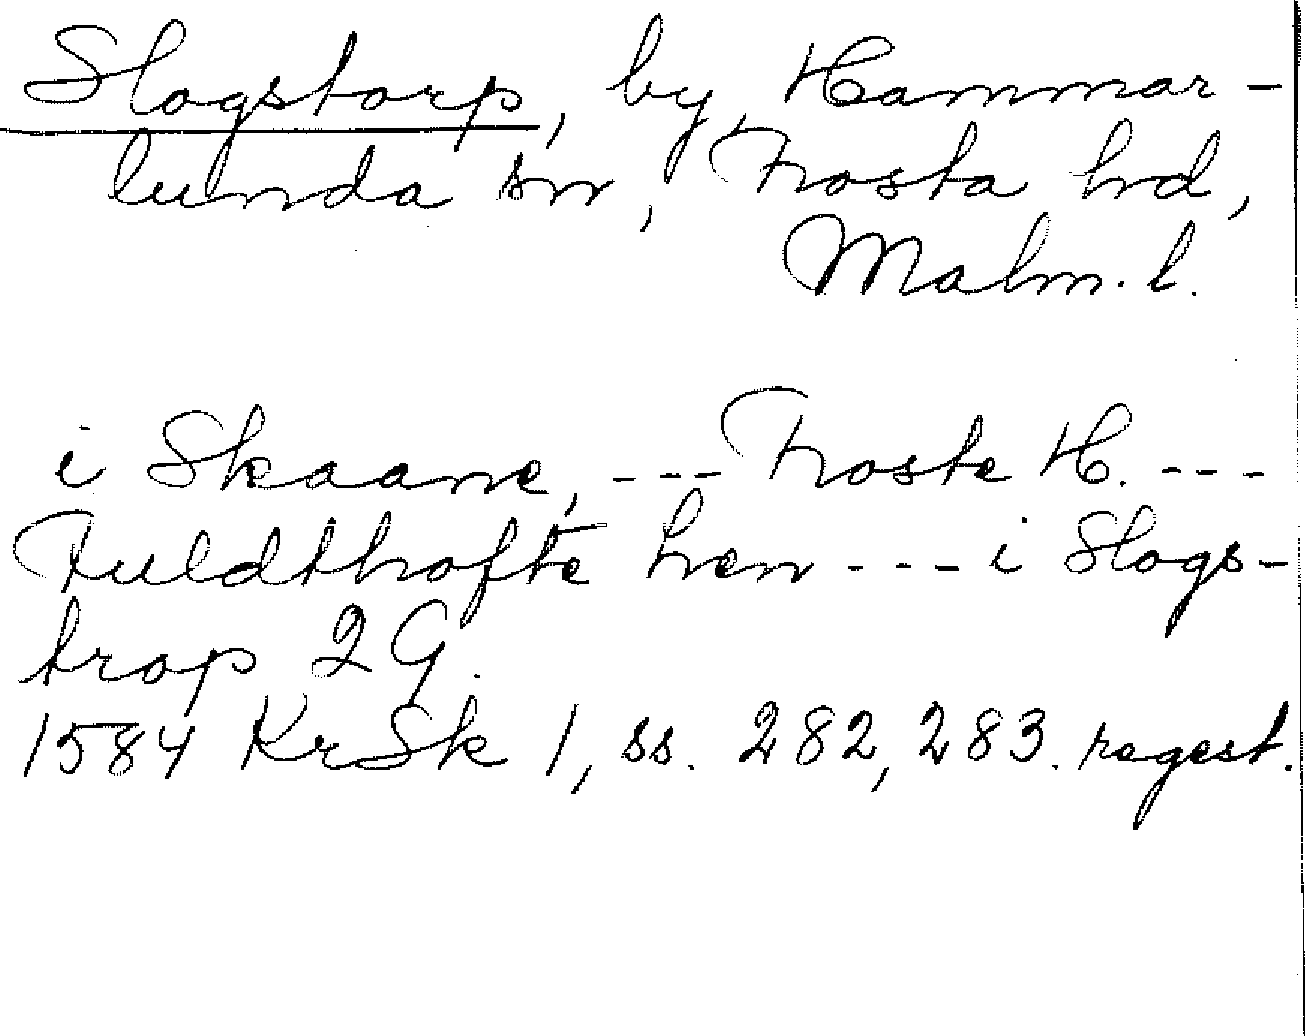 Slogstorp, by, Hammar-
lunda sn, Frosta hrd,
Malm. l.
i Skaane, --- Froste H. ---
Fuldthofte Len --- i Slogs-
trop 2 G.
1584 KrSk 1, ss. 282, 283. regest.